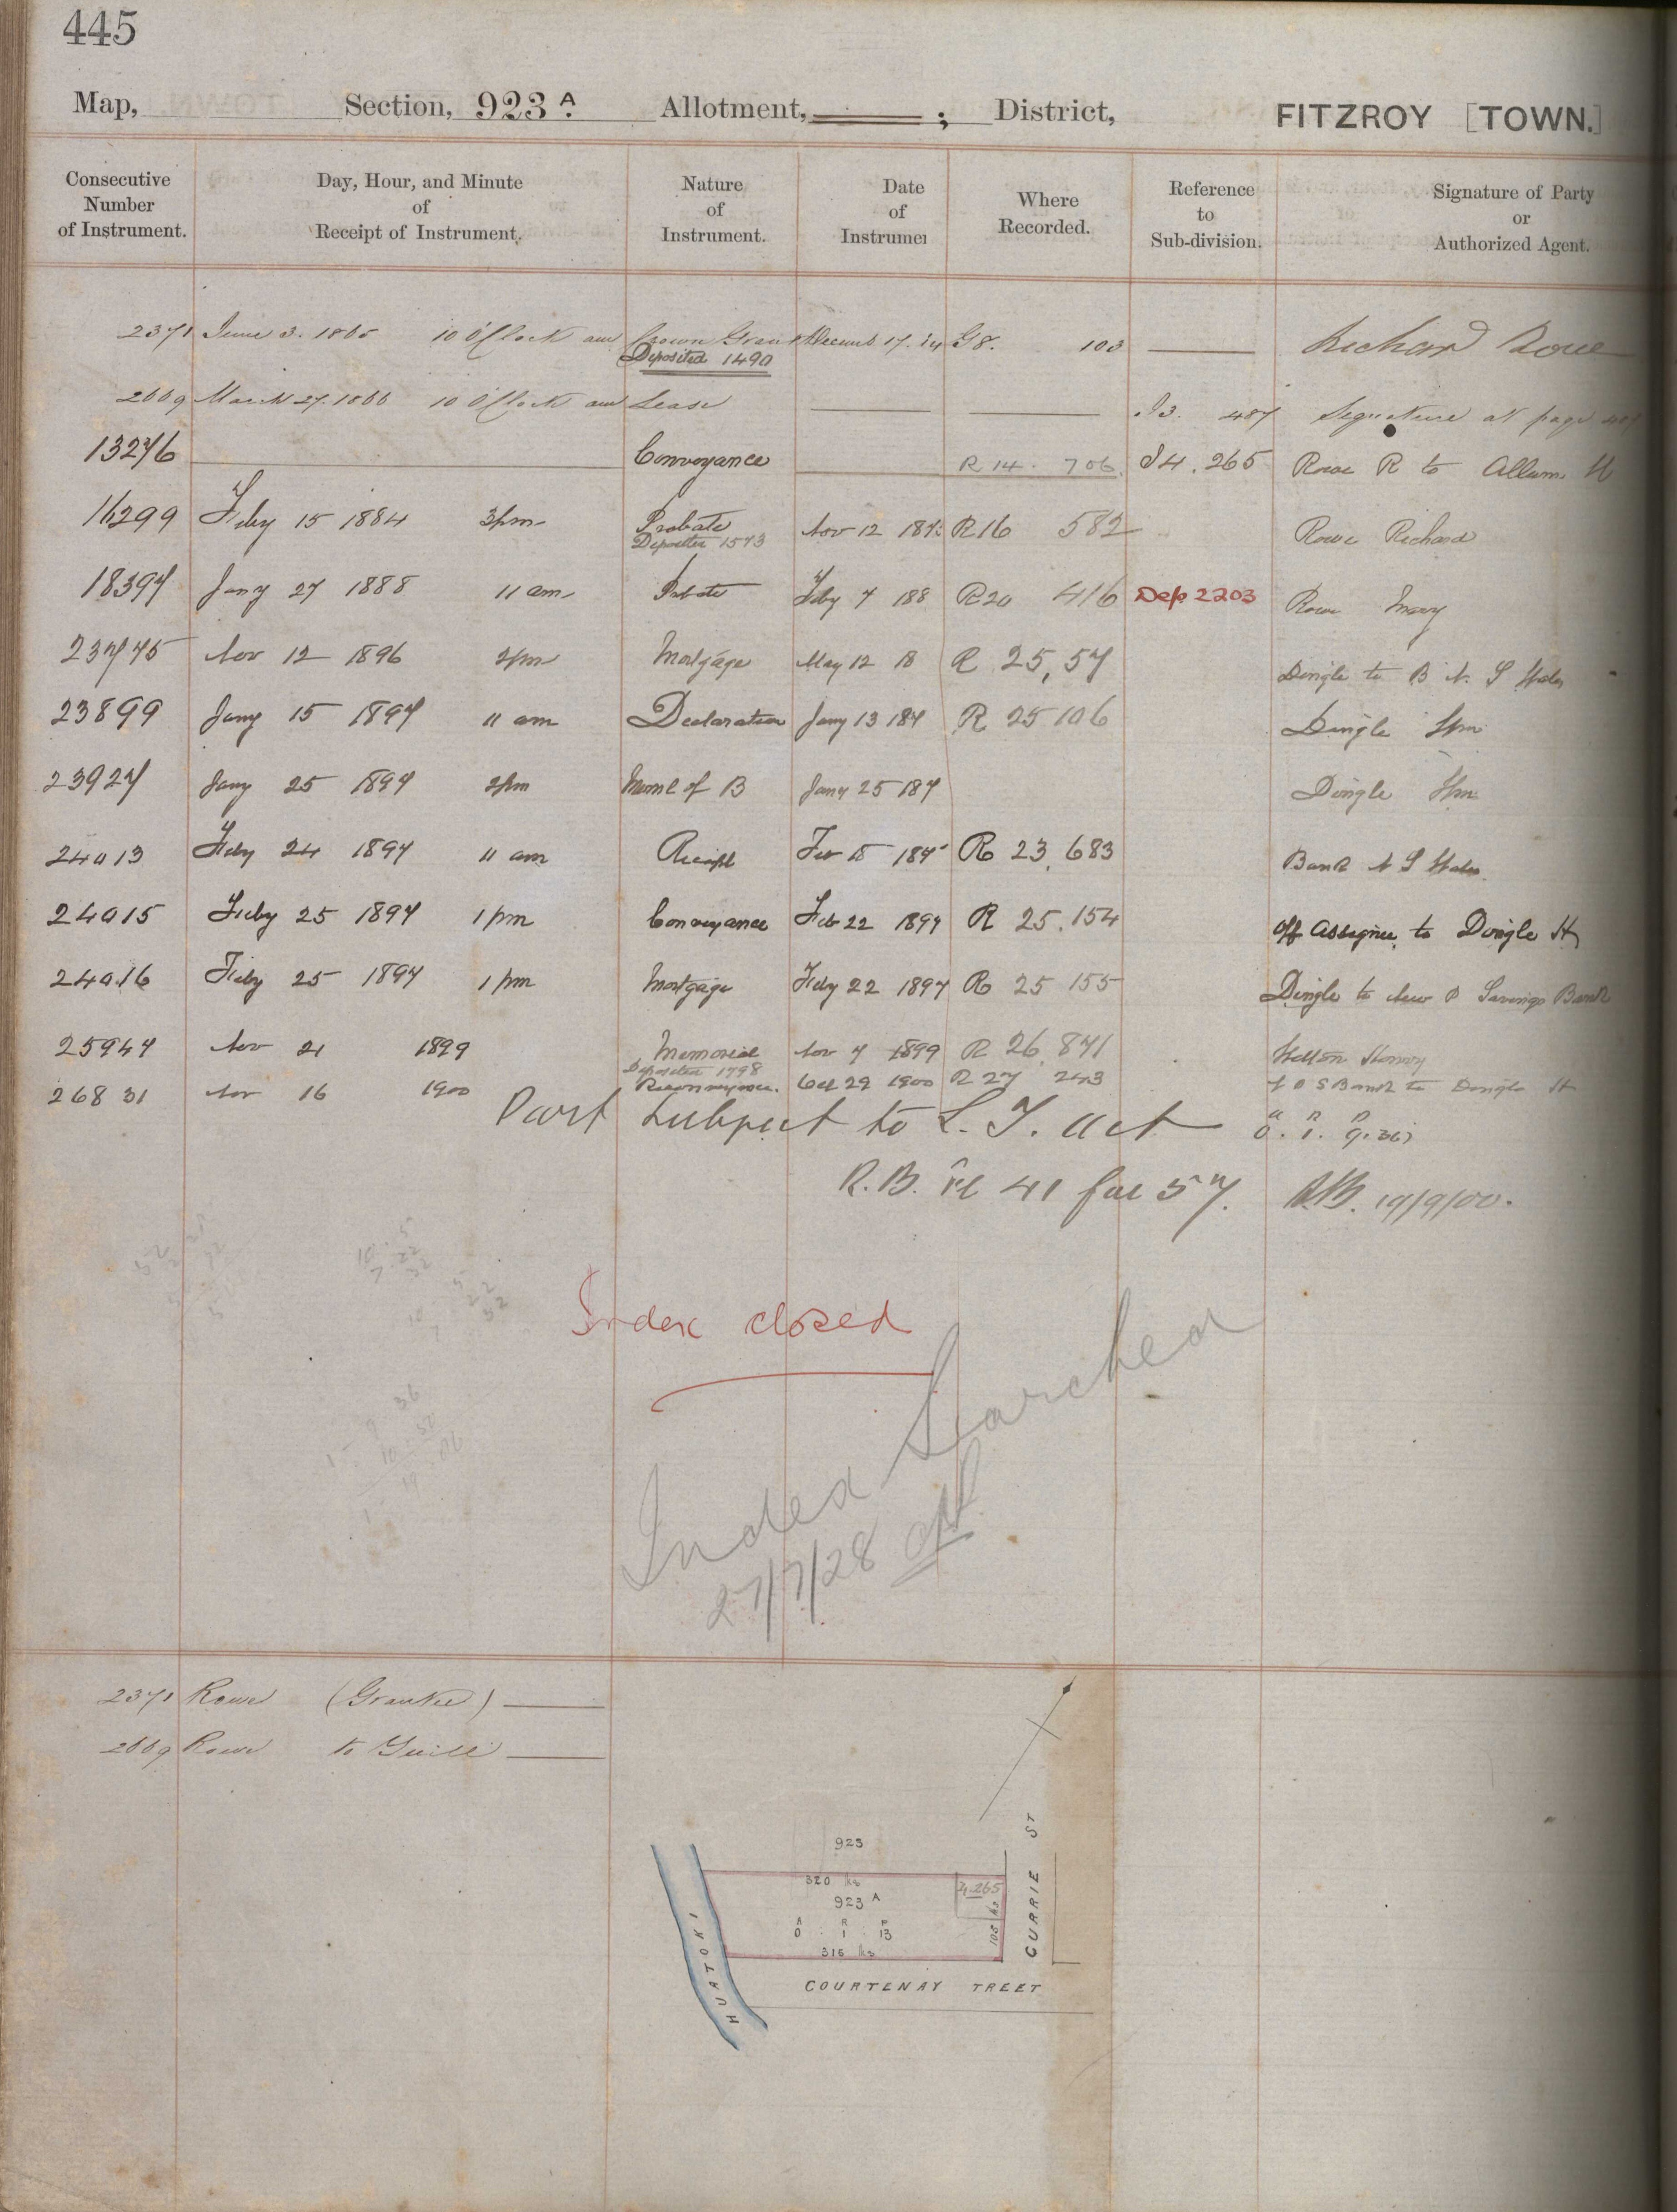 445
Map, Section, 923 A. Allotment, ; District, FITZROY [TOWN.]
Consecutive Number of Instrument. Day, Hour, and Minute of Receipt of Instrument. Nature of Instrument. Date of Instrumen Where Recorded. Reference to Sub-division. Signature of Party or Authorized Agent.
2371 June 3. 1865 10 O'Clock am Crown Grant G8. 103 Richard Rowe
Deposited 1490
2669 March 27. 1866 10 O'Clock am Lease I3. 487 Signature at page
13276 Conveyance R 14. 706 I4. 265 Rowe R to Allum H
16299 Feby 15 1884 3pm Probate Nov 12 R16 582 Rowe Richard
Deposited 1573
18397 Jany 27 1888 11 am Probate Feby 7 188 R20 416 Dep 2203 Rowe Mary
23745 Nov 12 1896 2pm Mortgage May 12 18 R 25, 57 Dingle to B N. S Wales
23899 Jany 15 1897 11 am Declaration Jany 13 189 R 25 106 Dingle Hm
23927 Jany 25 1897 2pm Meml of B Jany 25 189 Dingle Hm
24013 Feby 24 1897 11 am Receipt R 23, 683 Bank N S Wales
24015 Feby 25 1897 1 pm Conveyance Feb 22 1897 R 25. 154 Off Assignee to Dingle H
24016 Feby 25 1897 1 pm Mortgage Feby 22 1897 R 25 155 Dingle to New P Savings Bank
25947 Nov 21 1899 Memorial Nov 7 1899 R 26. 871
Deposited 1798
26831 Nov 16 1900 Reconveyance. Oct 29 1900 R 27 243 S Bank to Dingle H
Part subject to L. T. Act A R P
0. 1. 9.
R.B. Vl 41 fol 57. 19/9/00.
Index closed
Index Searched
27/7/28
2371 Rowe (Grantee)
2669 Rowe to
923
320 lks
4.265
923 A
A R P
0 . 1 . 13
105 lks
316 lks
CURRIE ST
HUATOKI
COURTENAY TREET